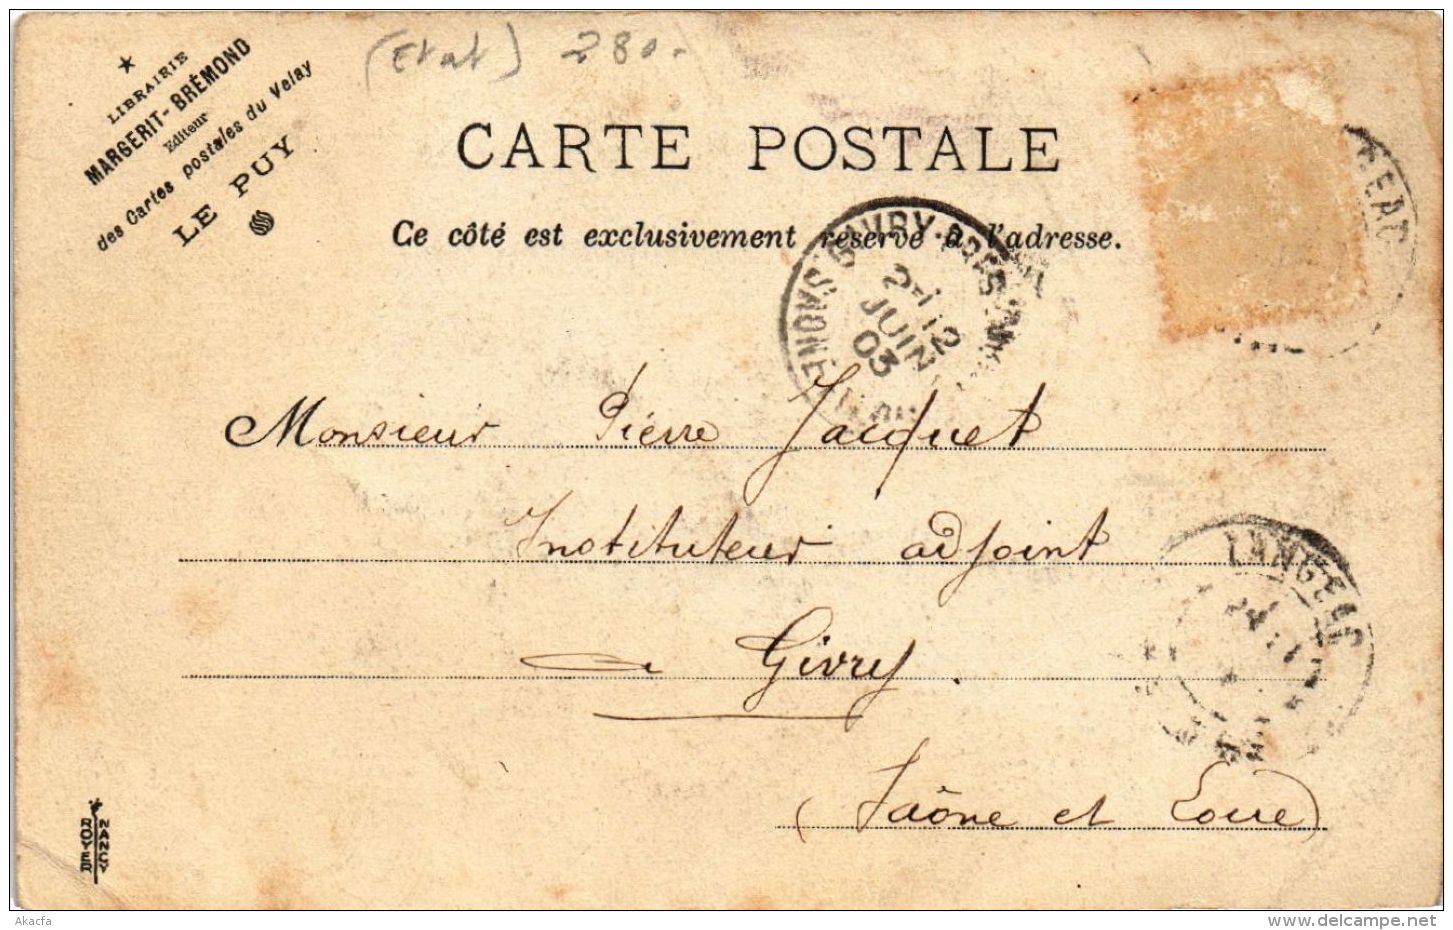 (Etat) 280.-
LIBRAIRIE
MARGERIT-BRÉMOND
Editeur
des Cartes postales du Velay
LE PUY
CARTE POSTALE
Ce côté est exclusivement réservé à l'adresse.
GEAC
GIVRY-PRÈS
2-1 12
JUIN
03
Monsieur Pierre Jacquet
Instituteur adjoint
à Givry.
(Saône et Loire)
LANGEAC
ROYER
NANCY
Akacfa
https://www.delcampe.net